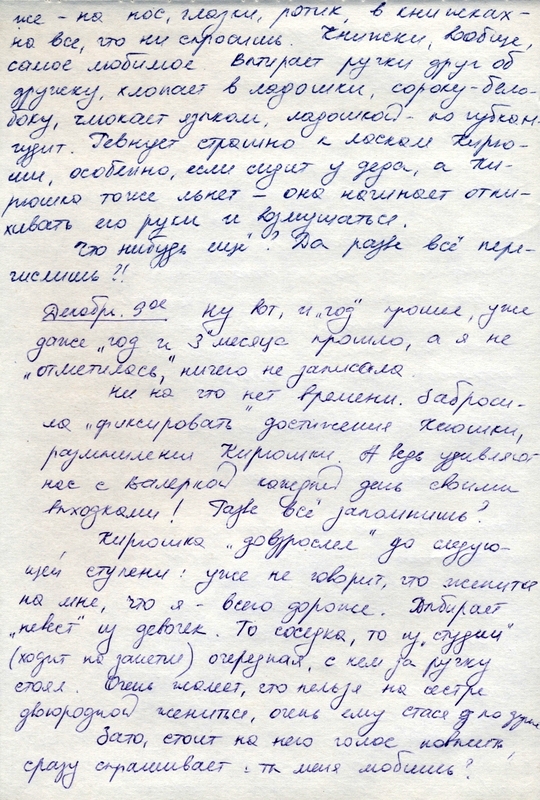 же - на нос, глазки, ротик, в книжках -
на все, что ни спросишь. Книжки, вообще,
самое любимое. Вытирает ручки друг об
дружку, хлопает в ладошки, сороку-бело-
боку, чмокает языком, ладошкой - по губкам -
гудит. Ревнует страшно к ласкам Кирю-
ши, особенно, если сидит у деда, а Ки-
рюшка тоже льнет - она начинает отпи-
хивать его руки и возмущаться.
Что нибудь ещё"? Да разве всё пере-
числишь?!
Декабрь. 9ое Ну вот, и "год" прошел, уже
даже "год и 3" месяца прошло, а я не
"отметилась," ничего не записала.
Ни на что нет времени. Заброси-
ла "фиксировать" достижения Ксюшки,
размышления Кирюшки. А ведь удивляют
нас с Валеркой каждый день своими
выходками! Разве всё запомнишь?
Кирюшка "довзрослел" до следую-
щей ступени: уже не говорит, что женится
на мне, что я - всего дороже. Выбирает
"невест" из девочек. То соседка, то из "студии"
(ходит на занятие) очередная, с кем за ручку
стоял. Очень жалеет, что нельзя на сестре
двоюродной жениться, очень ему Стася по душе
Зато, стоит на него голос повысить,
сразу спрашивает: - ты меня любишь?